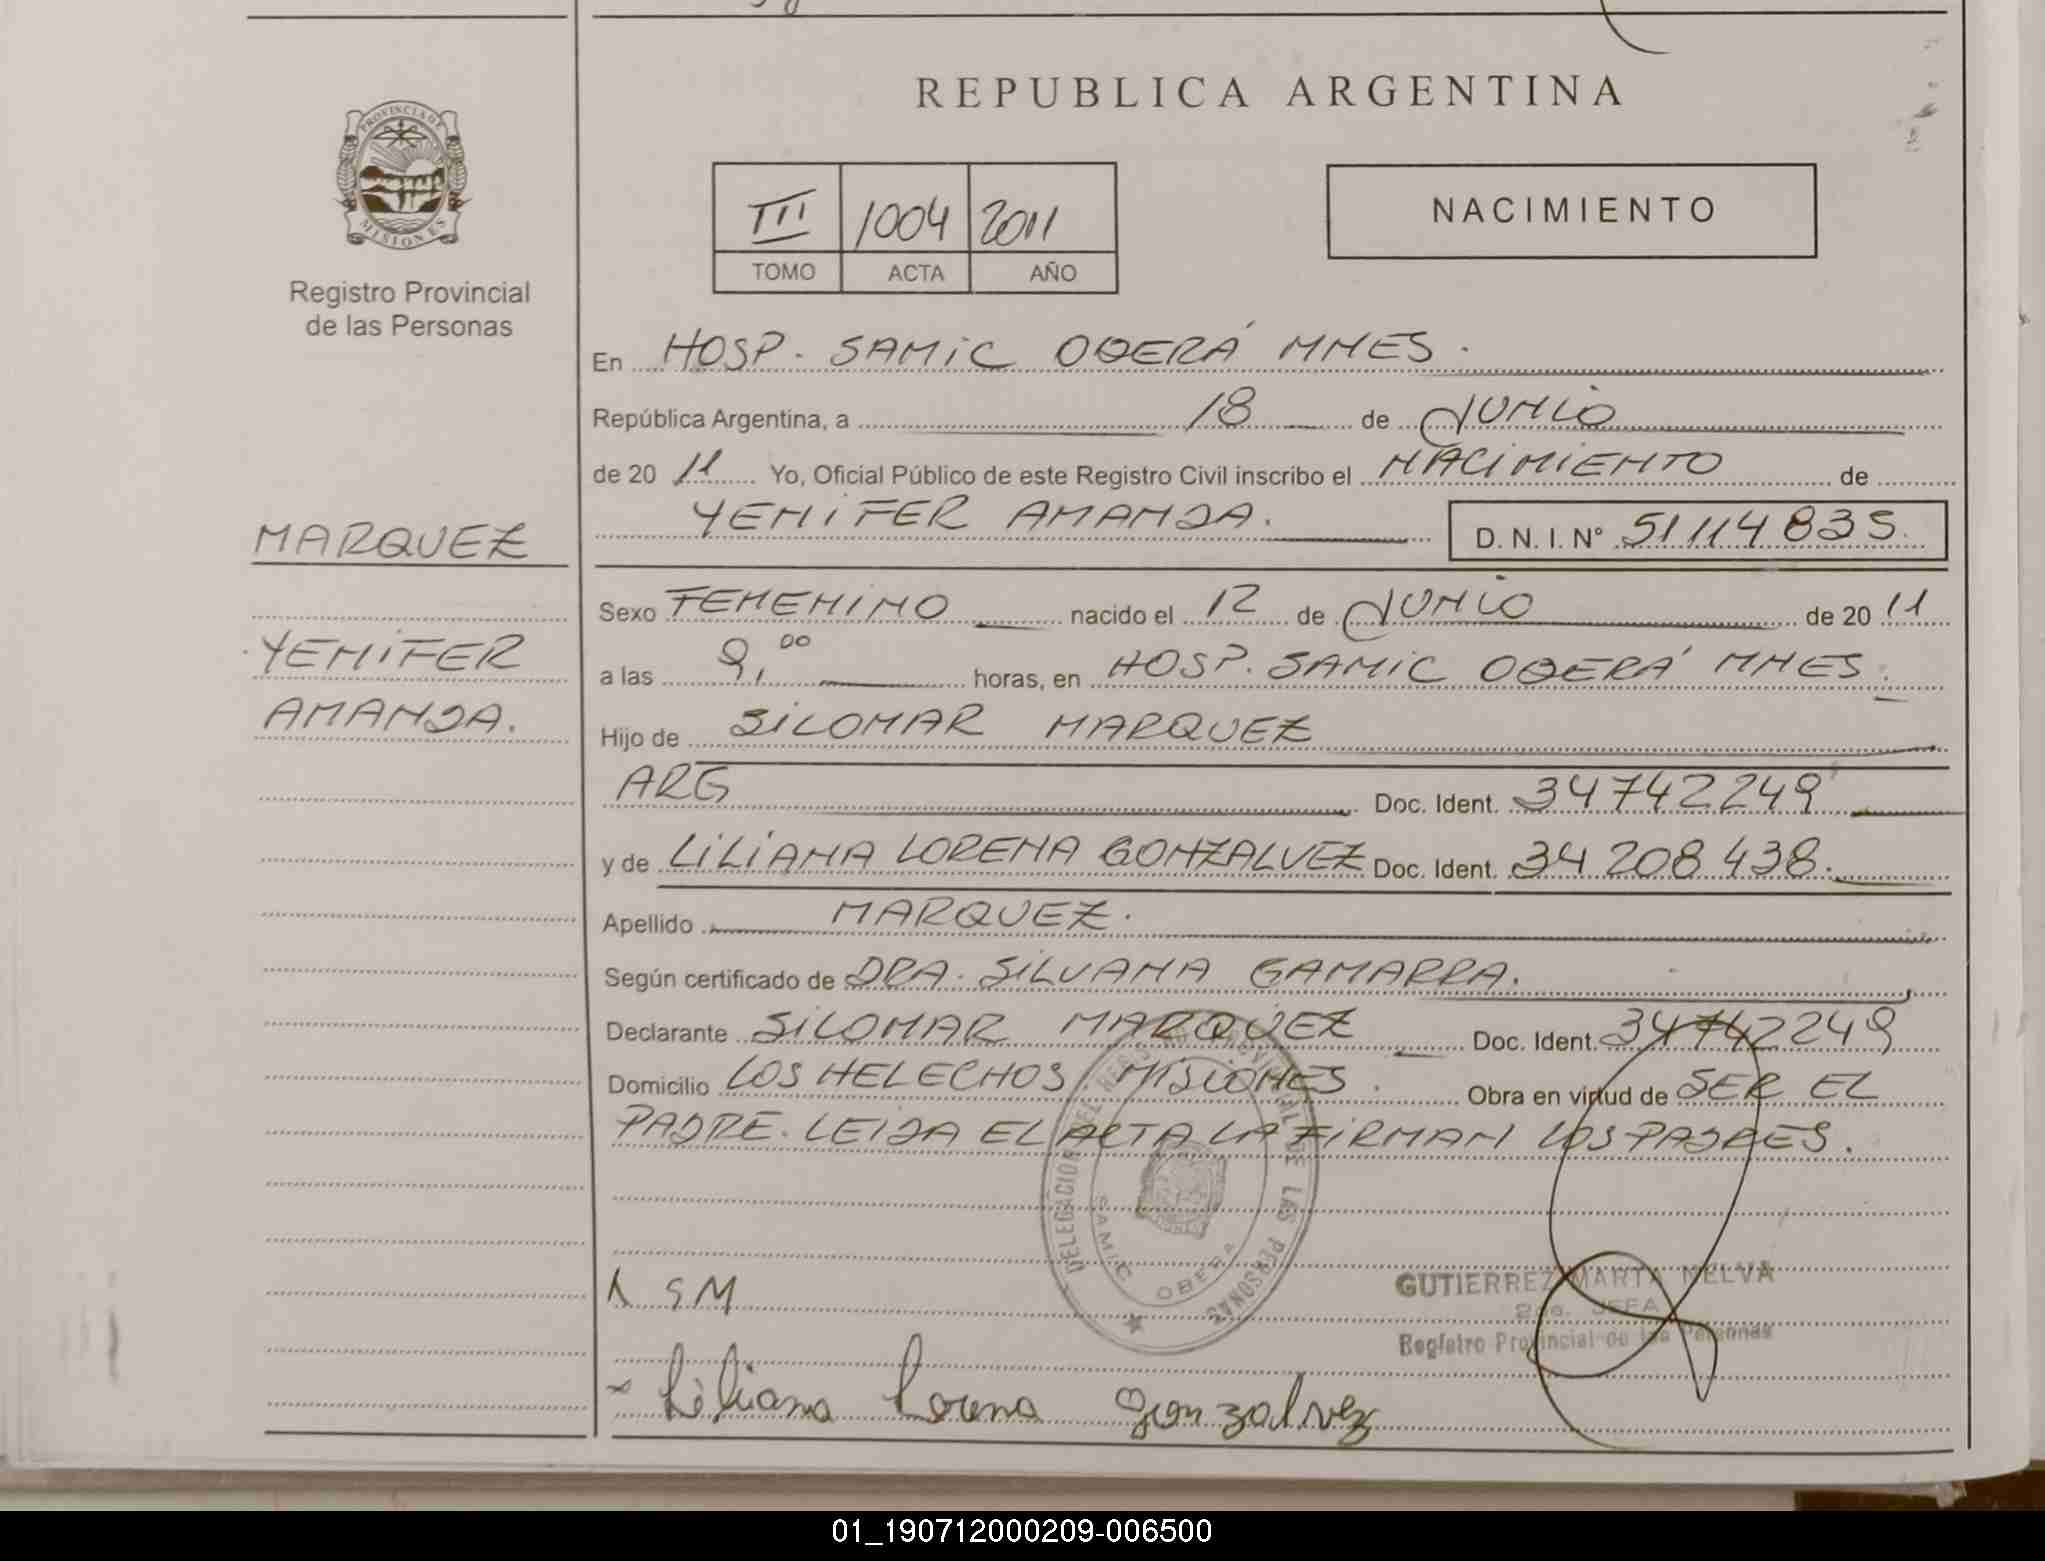 REPUBLICA ARGENTINA
PROVINCIA DE
MISIONES
Registro Provincial
de las Personas
III 1004 2011
TOMO ACTA AÑO
NACIMIENTO
En HOSP. SAMIC OBERÁ MNES.
República Argentina, a 18 de JUNIO
de 20 11 Yo, Oficial Público de este Registro Civil inscribo el NACIMIENTO de
YENIFER AMANDA.
D. N. I. N° 51114835.
MARQUEZ
YENIFER
AMANDA.
Sexo FEMENINO nacido el 12 de JUNIO de 20 11
a las 9,00 horas, en HOSP. SAMIC OBERÁ MNES.
Hijo de SILOMAR MARQUEZ
ARG Doc. Ident. 34742249
y de LILIANA LORENA GONZALVEZ Doc. Ident. 34208438.
Apellido MARQUEZ.
Según certificado de DRA. SILVANA GAMARRA.
Declarante SILOMAR MARQUEZ Doc. Ident. 34742249
Domicilio LOS HELECHOS. MISIONES. Obra en virtud de SER EL
PADRE. LEIDA EL ACTA LA FIRMAN LOS PADRES.
DELEGACION DEL REGISTRO PROVINCIAL DE LAS PERSONAS
SAMIC OBERA
SM
GUTIERREZ MARTA NELVA
2da. JEFA
Registro Provincial de las Personas
Liliana Lorena gonzalvez
01_190712000209-006500